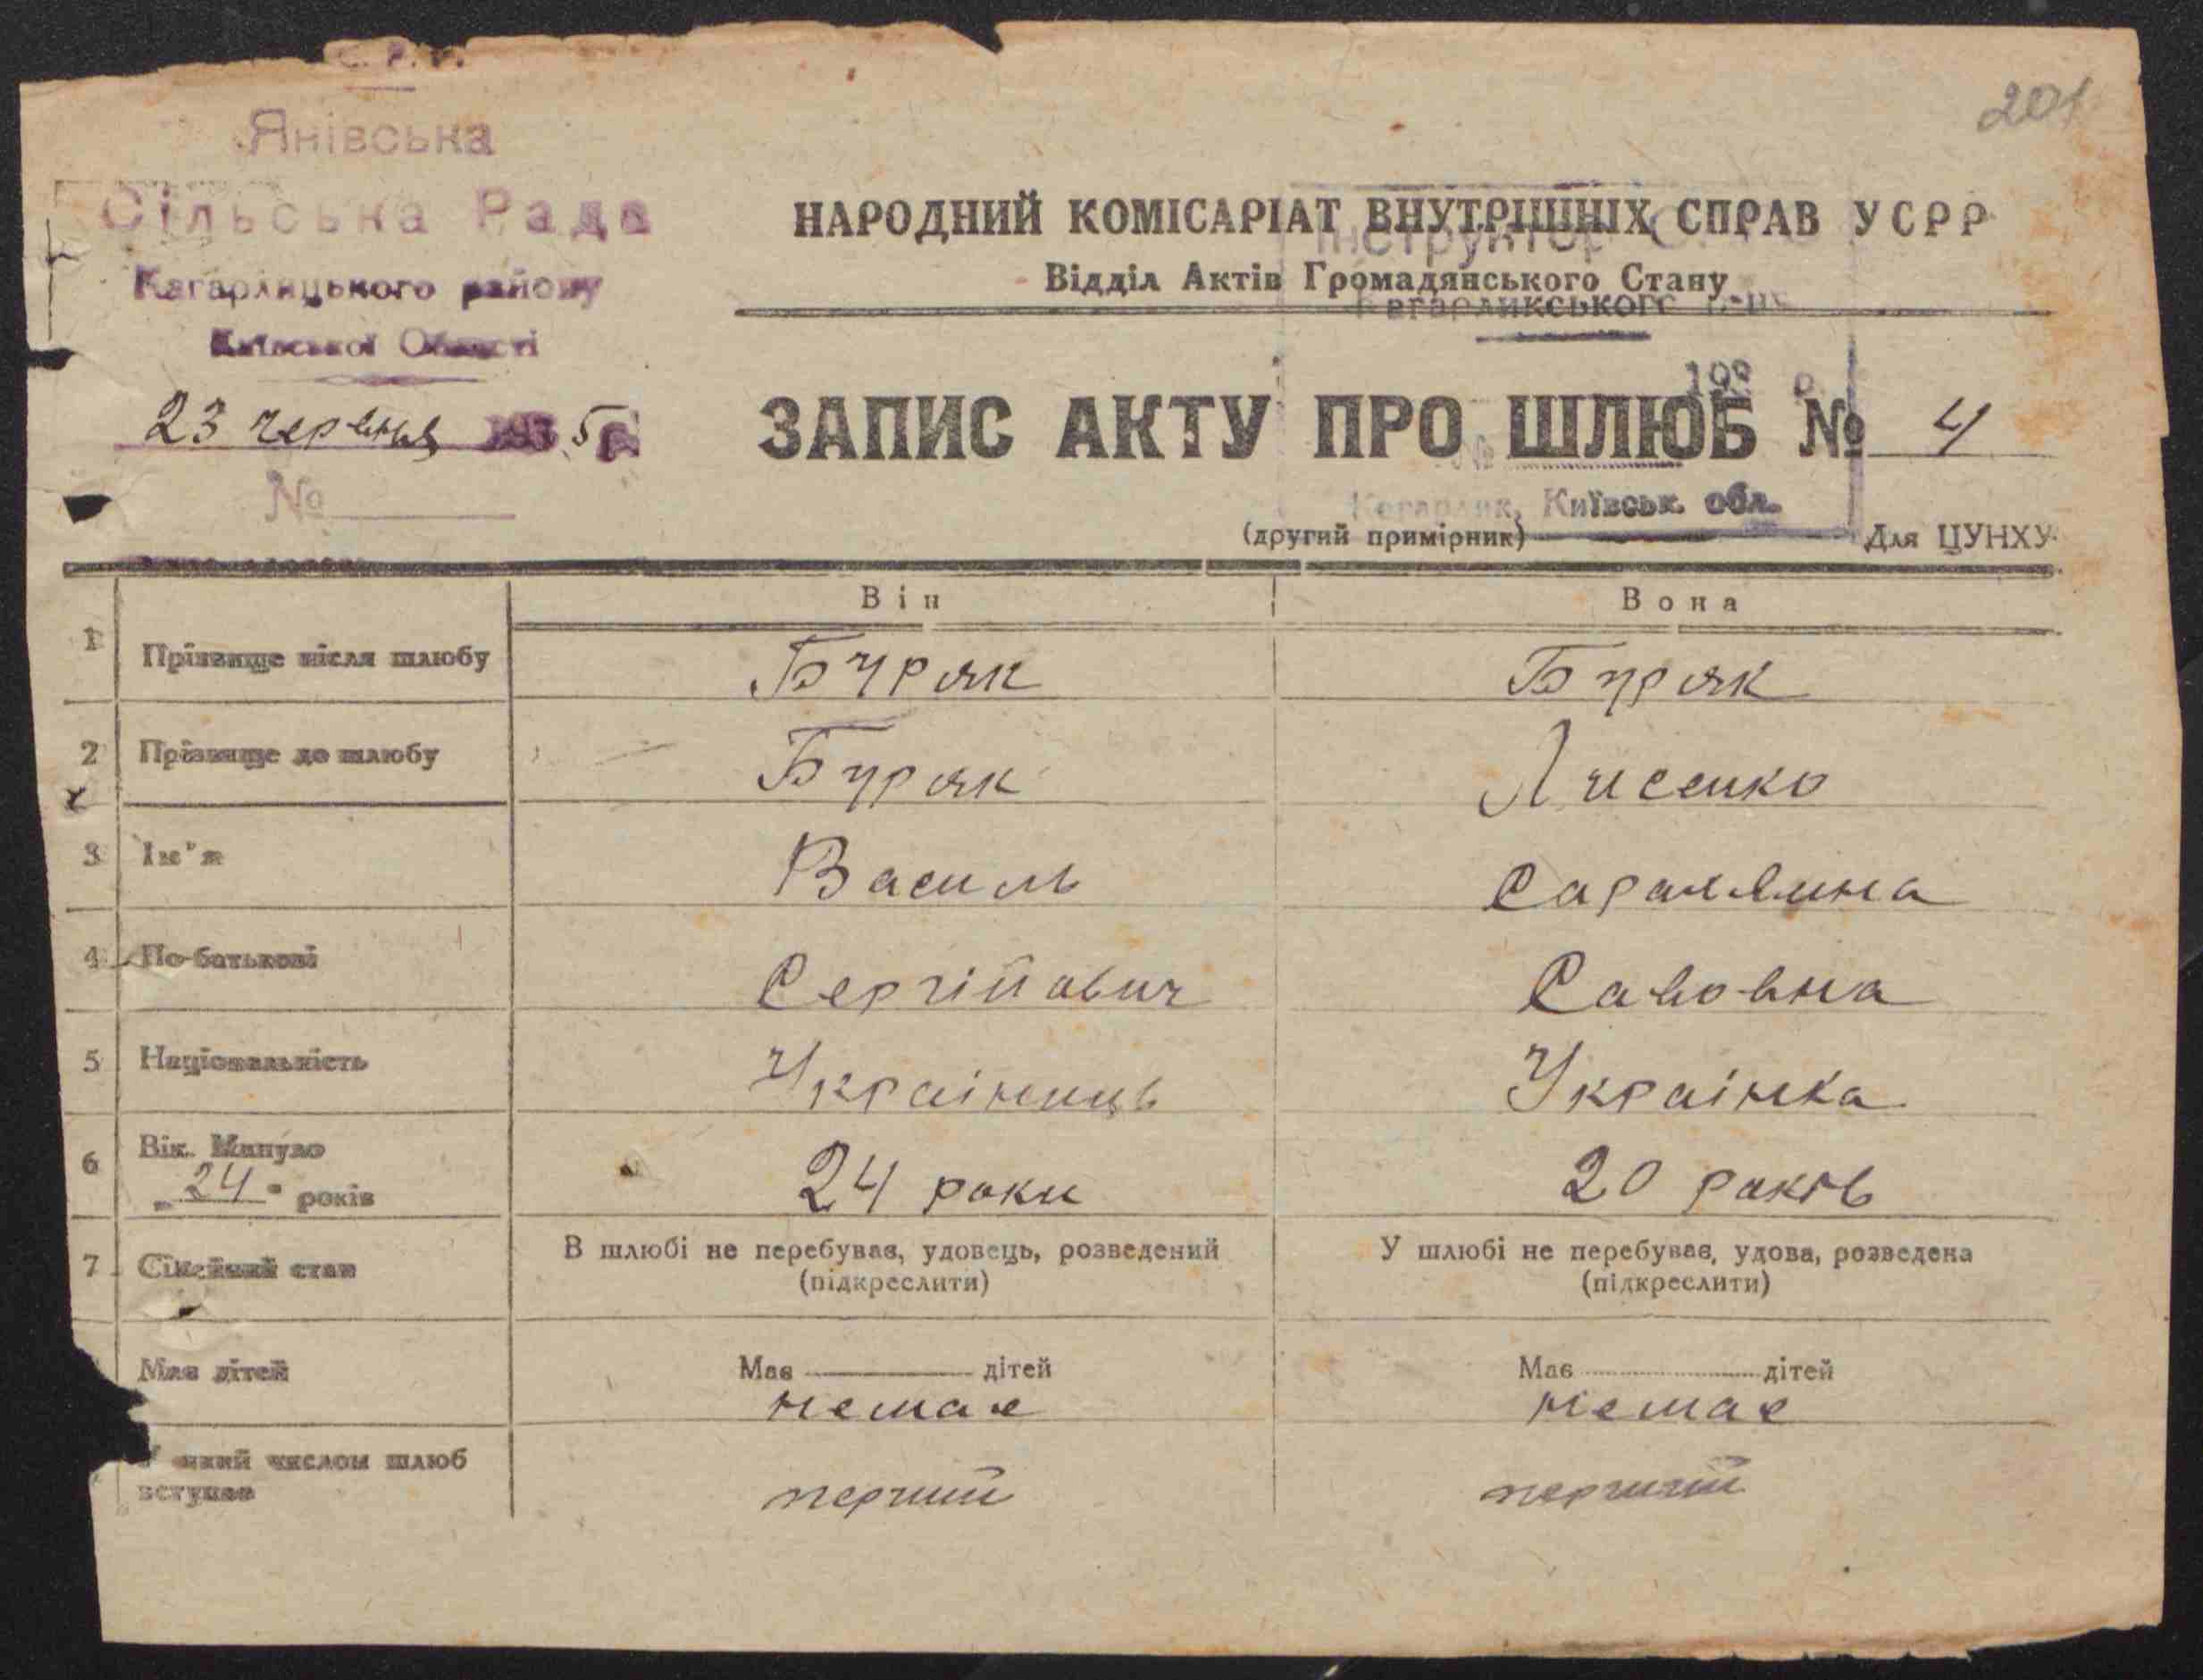 201
Янівська
Сільська Рада
Кагарлицького району
Київської Області
23 червня 1935 р.
№
НАРОДНИЙ КОМІСАРІАТ ВНУТРІШНІХ СПРАВ УСРР
Інструктор
Відділ Актів Громадянського Стану
Кагарликського
193 р.
ЗАПИС АКТУ ПРО ШЛЮБ № 4
№
Кагарлик, Київськ. обл.
(другий примірник) Для ЦУНХУ
Він Вона
1 Прізвище після шлюбу Буряк Буряк
2 Прізвище до шлюбу Буряк Лисенко
3 Ім'я Василь
4 По-батькові Сергійович Савовна
5 Національність Украінець Украінка
6 Вік. Минуло
„24" років 24 роки 20 років
7 Сімейний стан В шлюбі не перебував, удовець, розведений У шлюбі не перебував, удова, розведена
(підкреслити) (підкреслити)
Має дітей Має дітей Має дітей
немає немає
У який числом шлюб
вступає перший перший